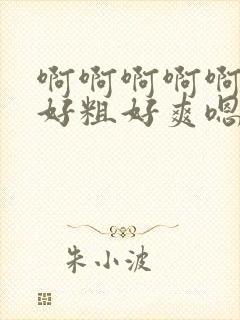 啊啊啊啊啊
好粗好爽嗯
朱小波